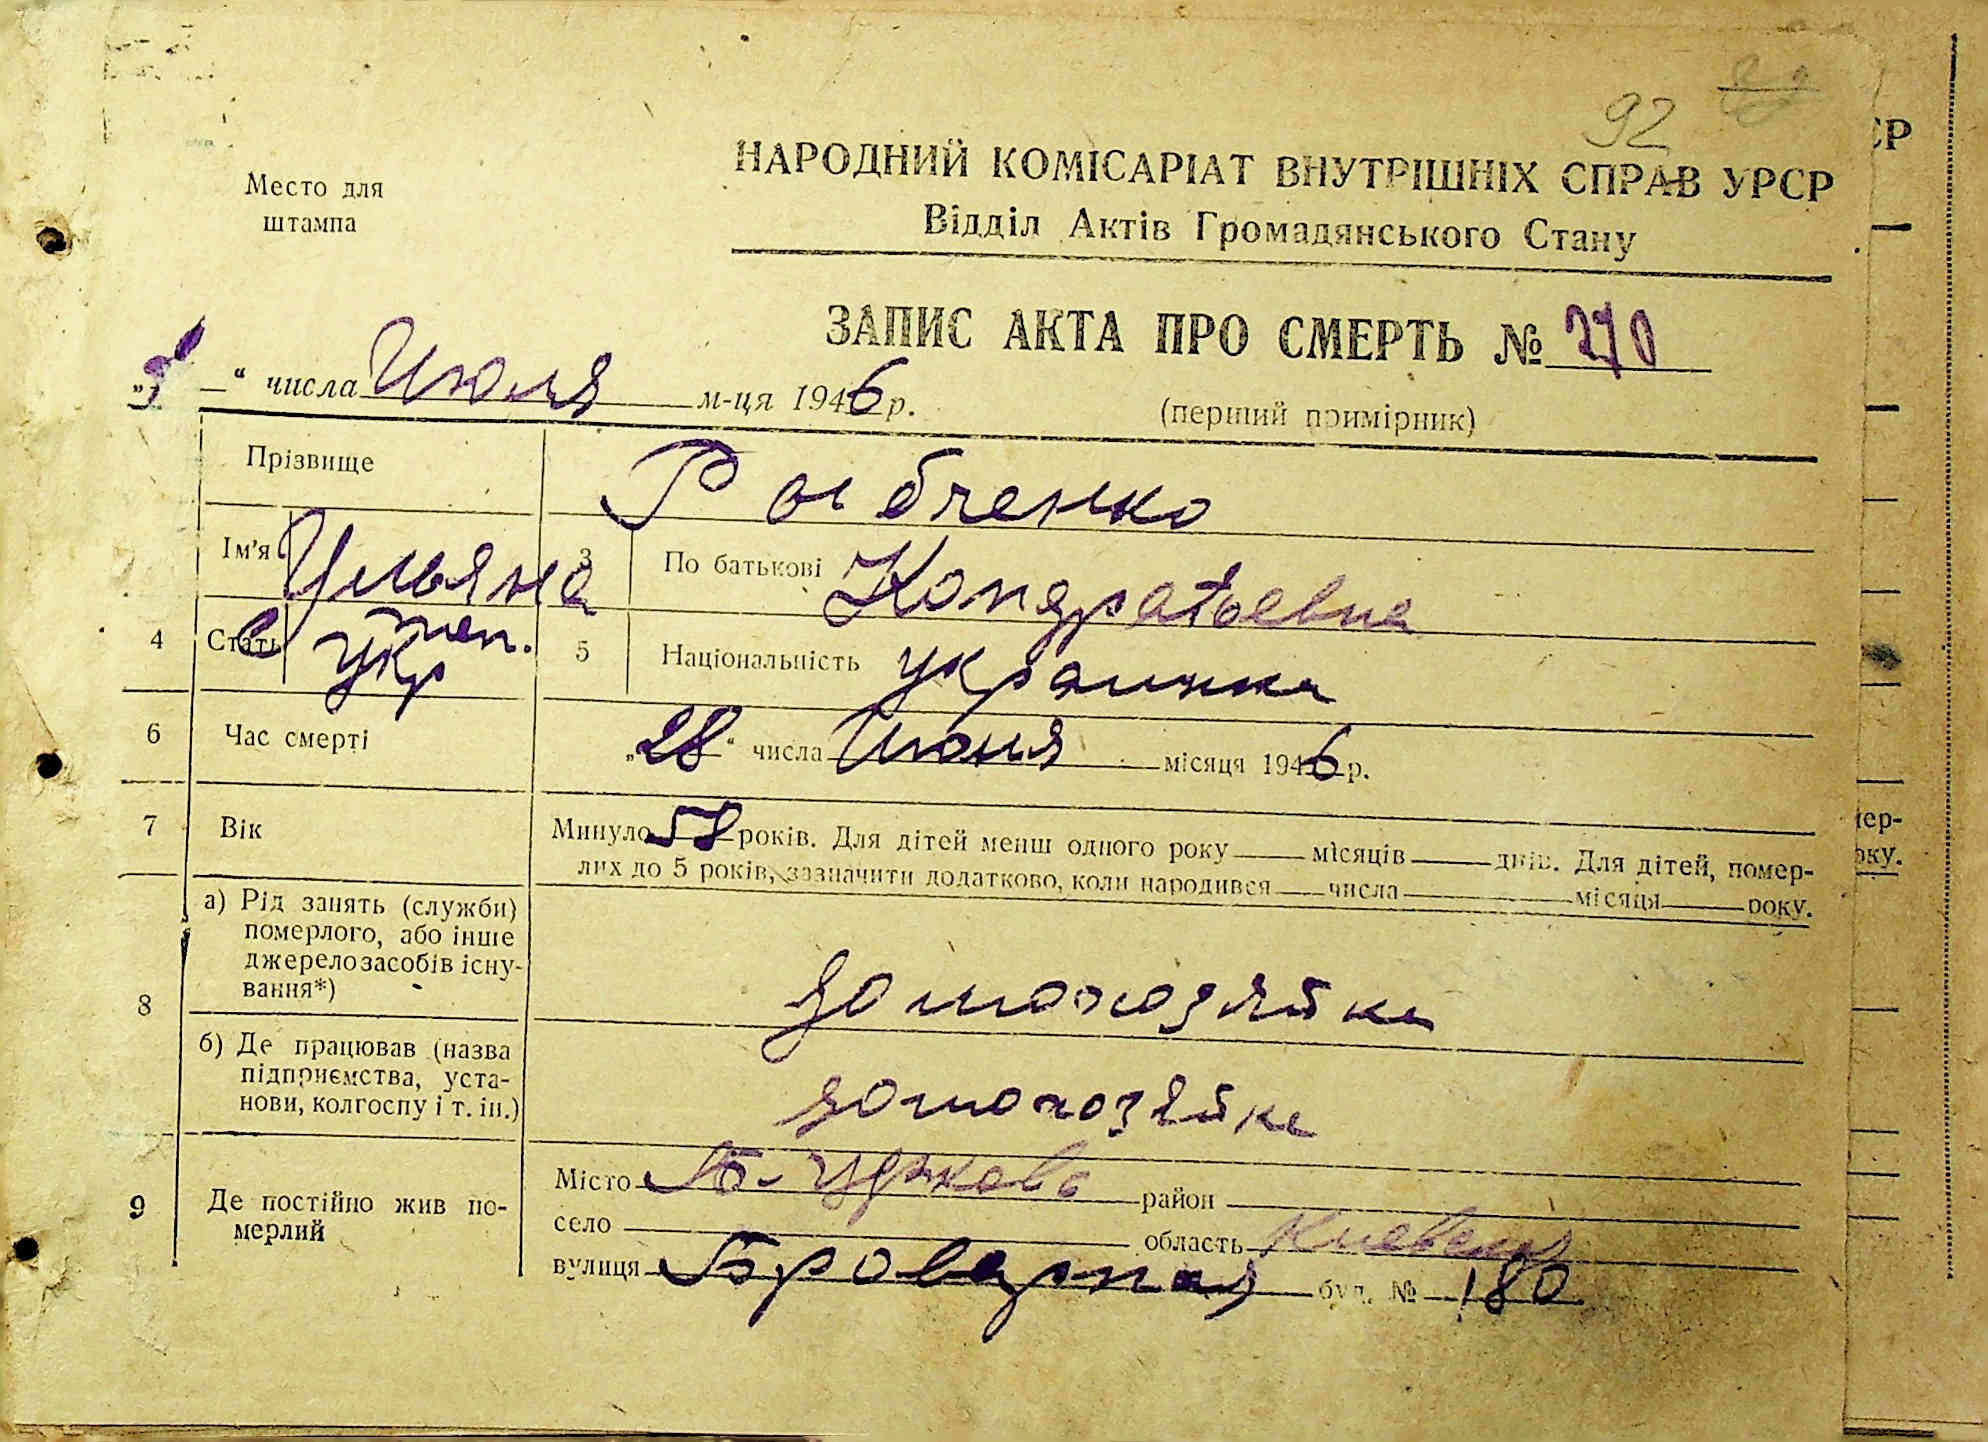 92
Место для
штампа
НАРОДНИЙ КОМІСАРІАТ ВНУТРІШНІХ СПРАВ УРСР
Відділ Актів Громадянського Стану
ЗАПИС АКТА ПРО СМЕРТЬ № 270
(перший примірник)
„ “ числа Июля м-ця 1946 р.
Прізвище Рыбченко
Ім'я Ульяна 3 По батькові Кондратьевна
4 Стать жен. укр 5 Національність украинка
6 Час смерті „28“ числа Июня місяця 1946 р.
7 Вік Минуло 58 років. Для дітей менш одного року місяців днів. Для дітей, помер-
лих до 5 років, зазначити додатково, коли народився числа місяця року.
8 а) Рід занять (служби)
померлого, або інше
джерело засобів існу-
вання*)
домохозяйка
б) Де працював (назва
підприємства, уста-
нови, колгоспу і т. ін.)
домохозяйка
9 Де постійно жив по-
мерлий
Місто район
село область Киевская
вулиця Броварная буд. № 180
СР
мер-
оку.